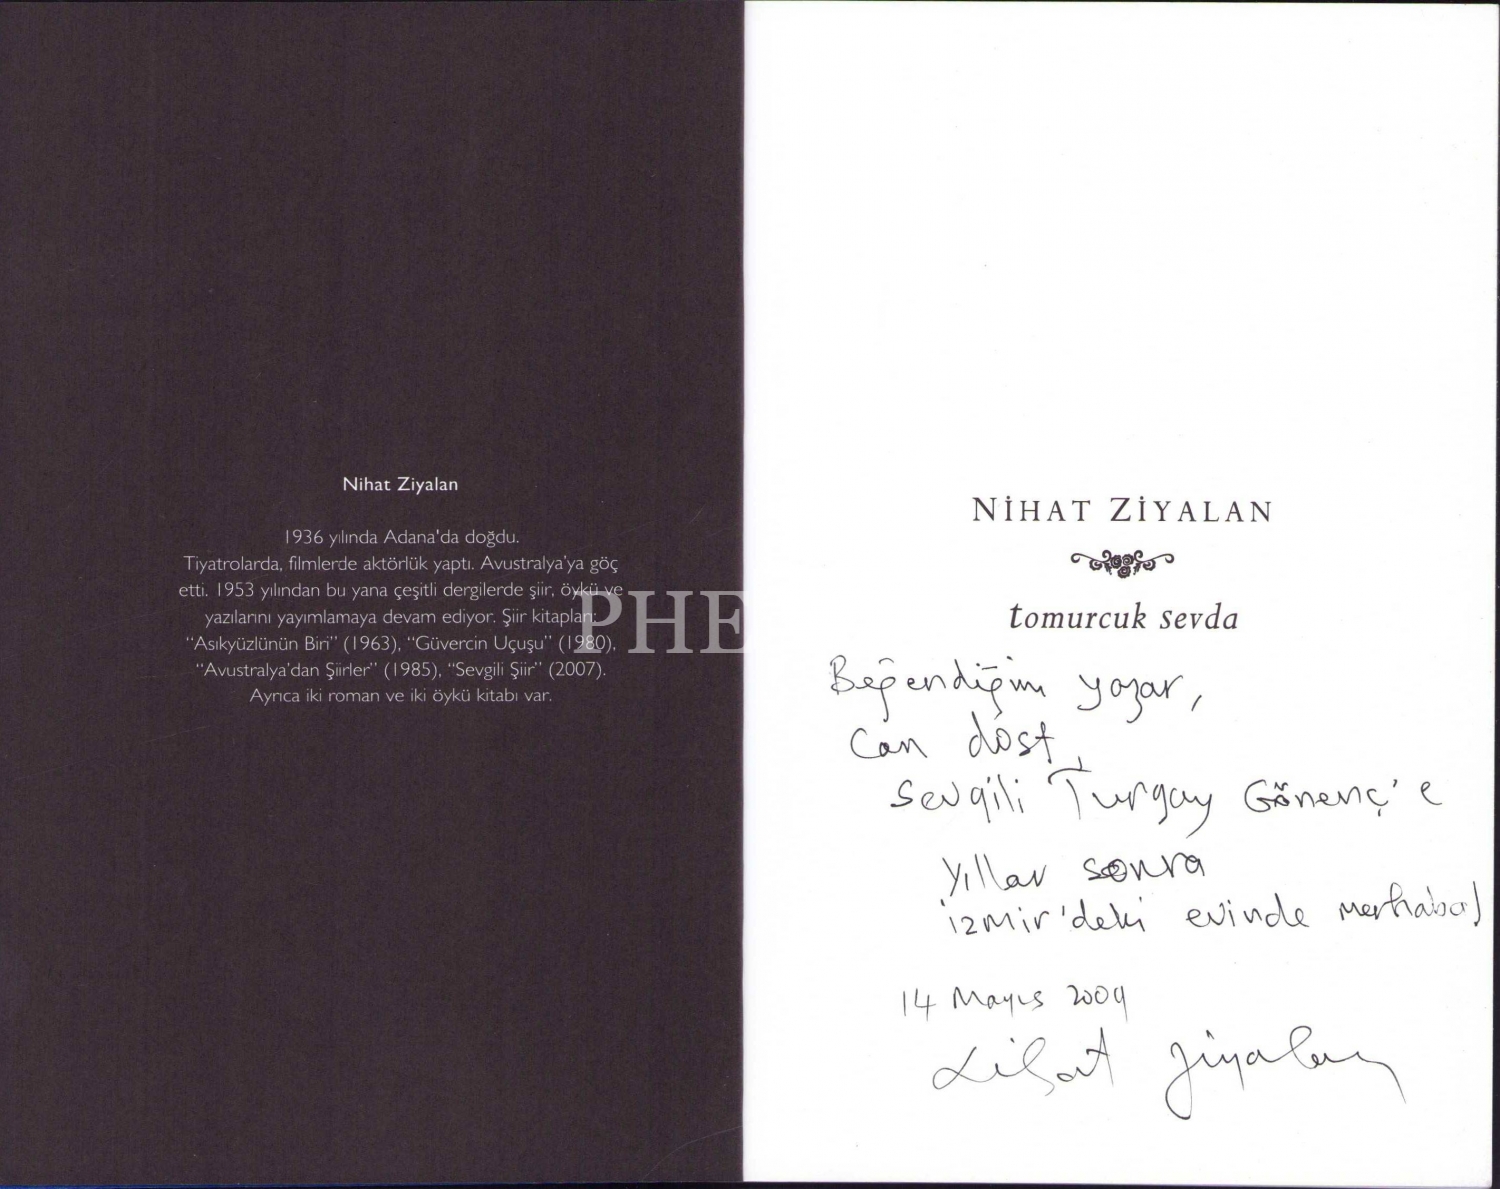 Nihat Ziyalan
1936 yılında Adana'da doğdu.
Tiyatrolarda, filmlerde aktörlük yaptı. Avustralya'ya göç
etti. 1953 yılından bu yana çeşitli dergilerde şiir, öykü ve
yazılarını yayımlamaya devam ediyor. Şiir kitapları:
“Asıkyüzlünün Biri” (1963), “Güvercin Uçuşu” (1980),
“Avustralya'dan Şiirler” (1985), “Sevgili Şiir” (2007).
Ayrıca iki roman ve iki öykü kitabı var.
PHE
NİHAT ZİYALAN
tomurcuk sevda
Beğendiğim yazar,
Can dost,
Sevgili Turgay Gönenç'e
Yıllar sonra
İzmir'deki evinde merhaba!
14 Mayıs 2009
Nihat Ziyalan